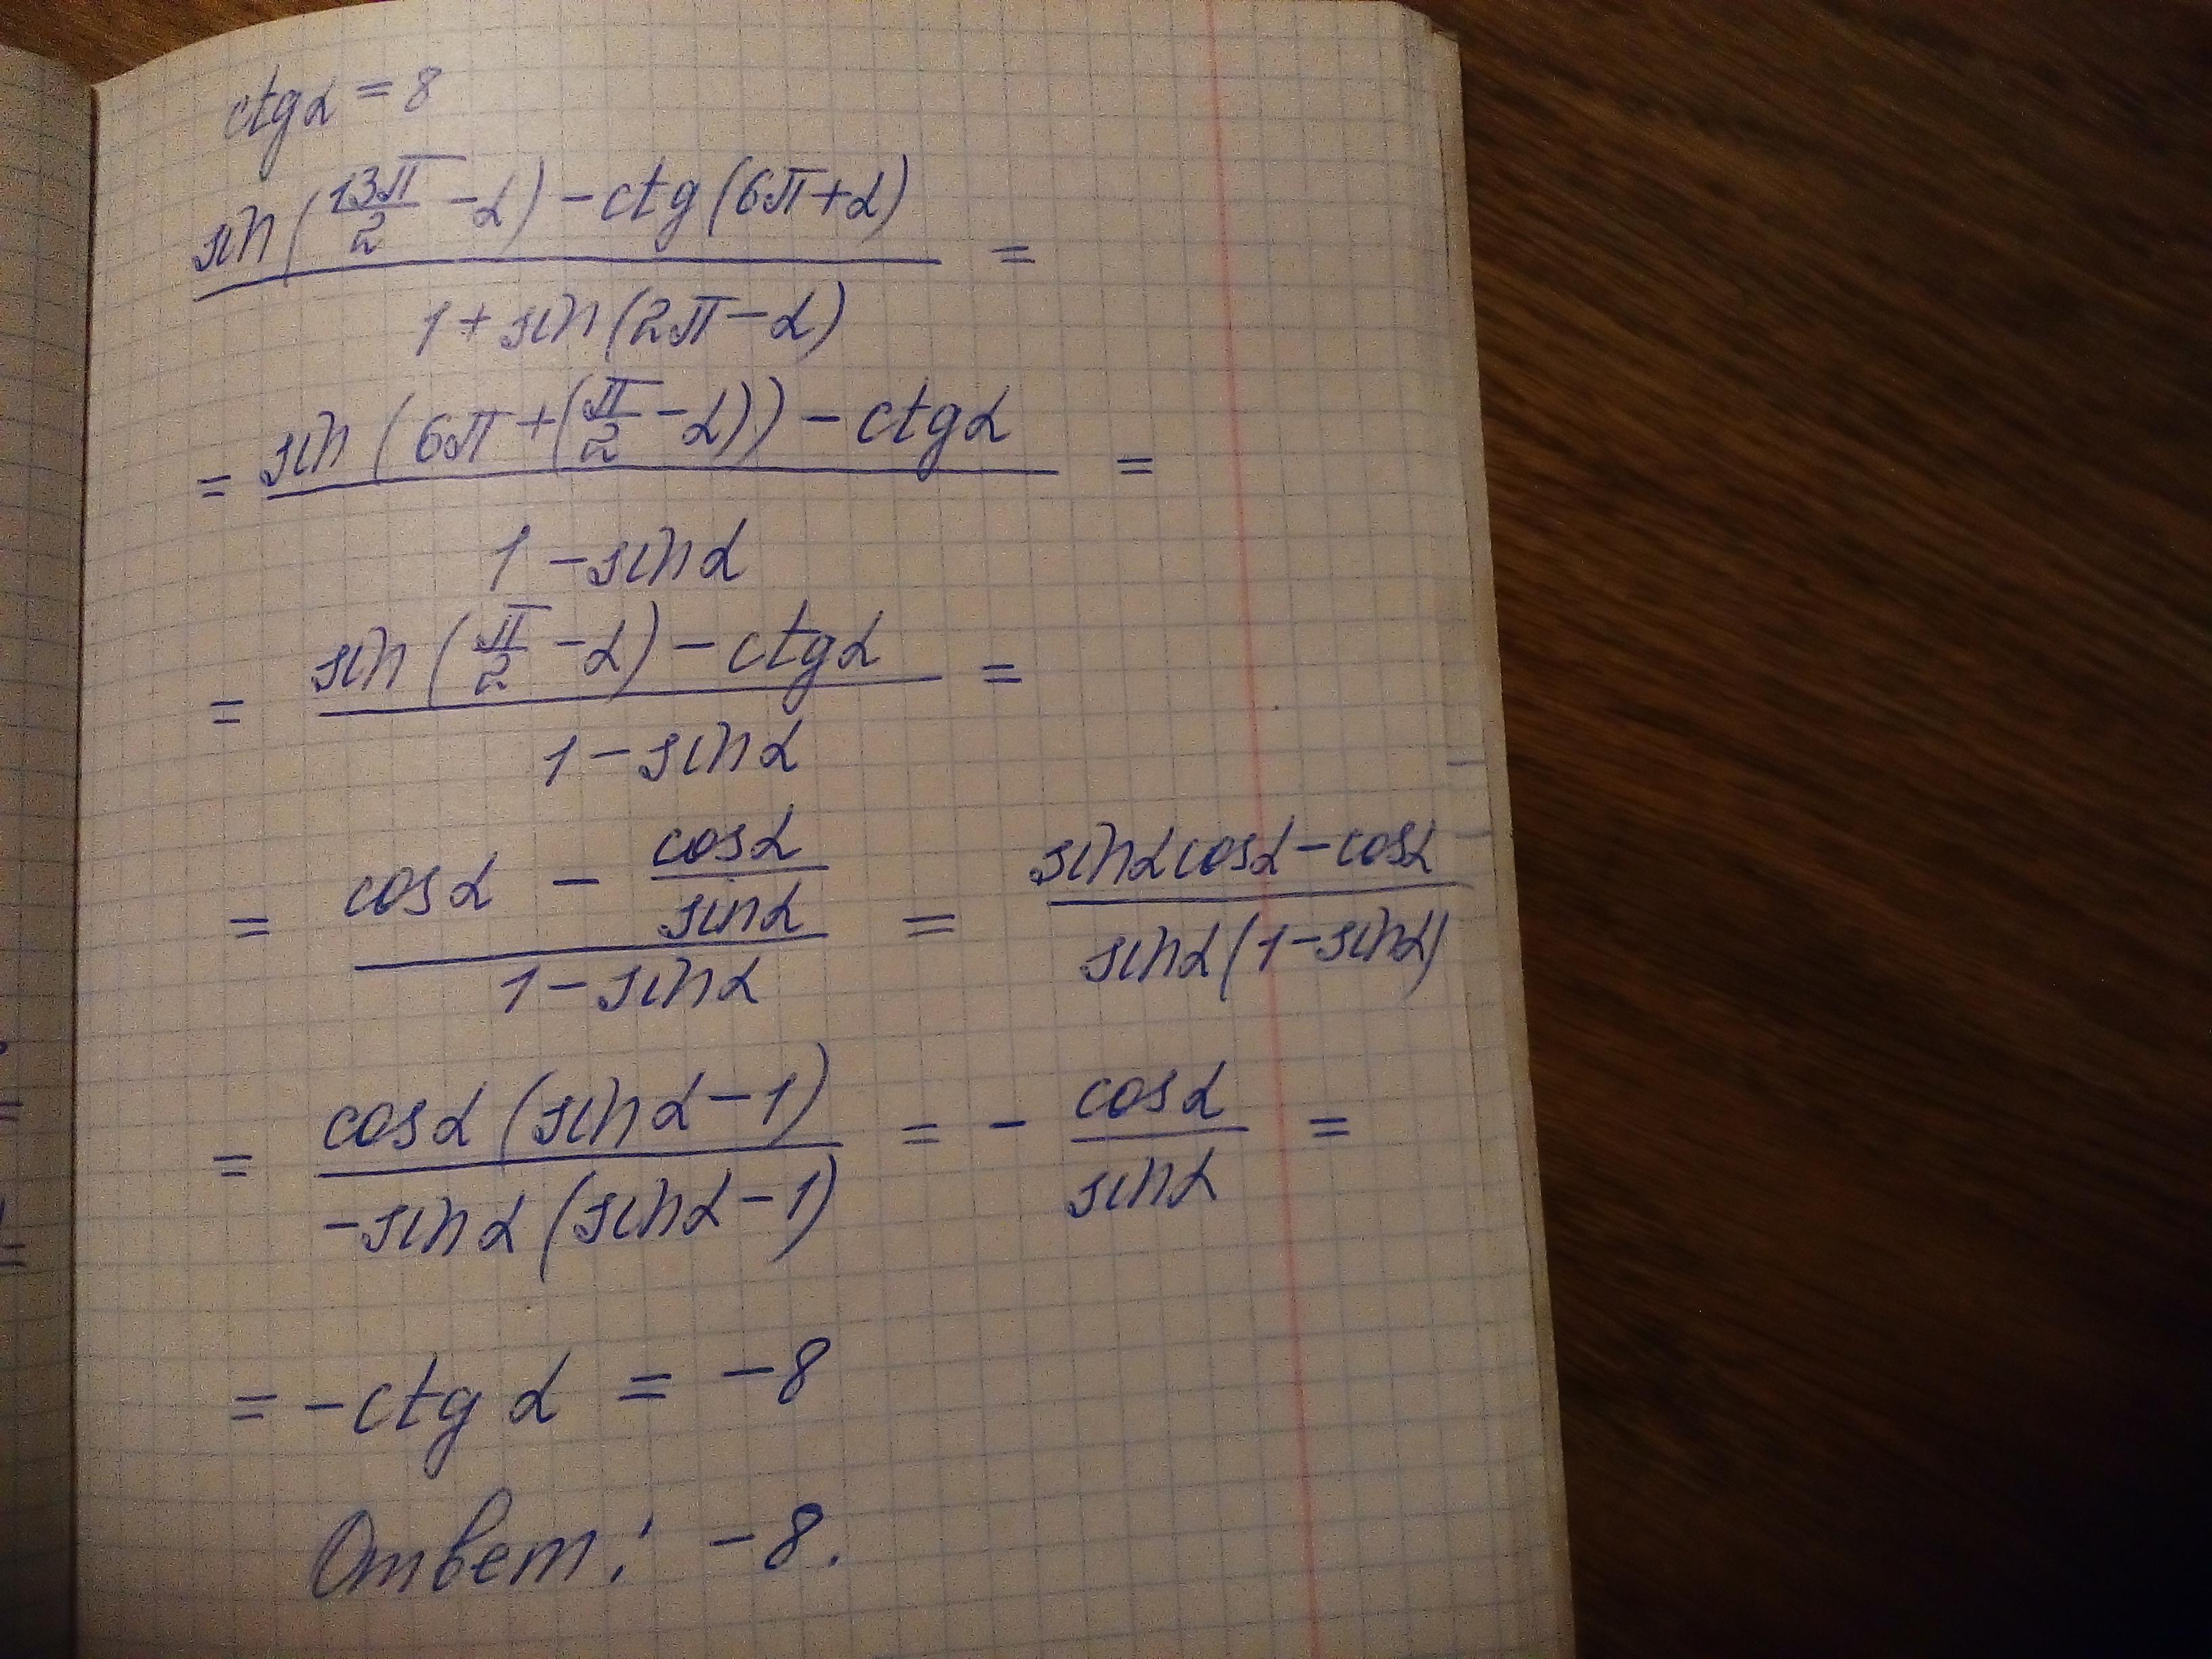 ctgα = 8
sin(13π/2 - α) - ctg(6π + α)
1 + sin(2π - α) =
= sin(6π + (π/2 - α)) - ctgα
1 - sinα =
= sin(π/2 - α) - ctgα
1 - sinα =
= cosα - cosα/sinα
1 - sinα = sinα cosα - cosα
sinα(1 - sinα)
= cosα(sinα - 1)
-sinα(sinα - 1) = - cosα/sinα =
= -ctgα = -8
Ответ: -8.